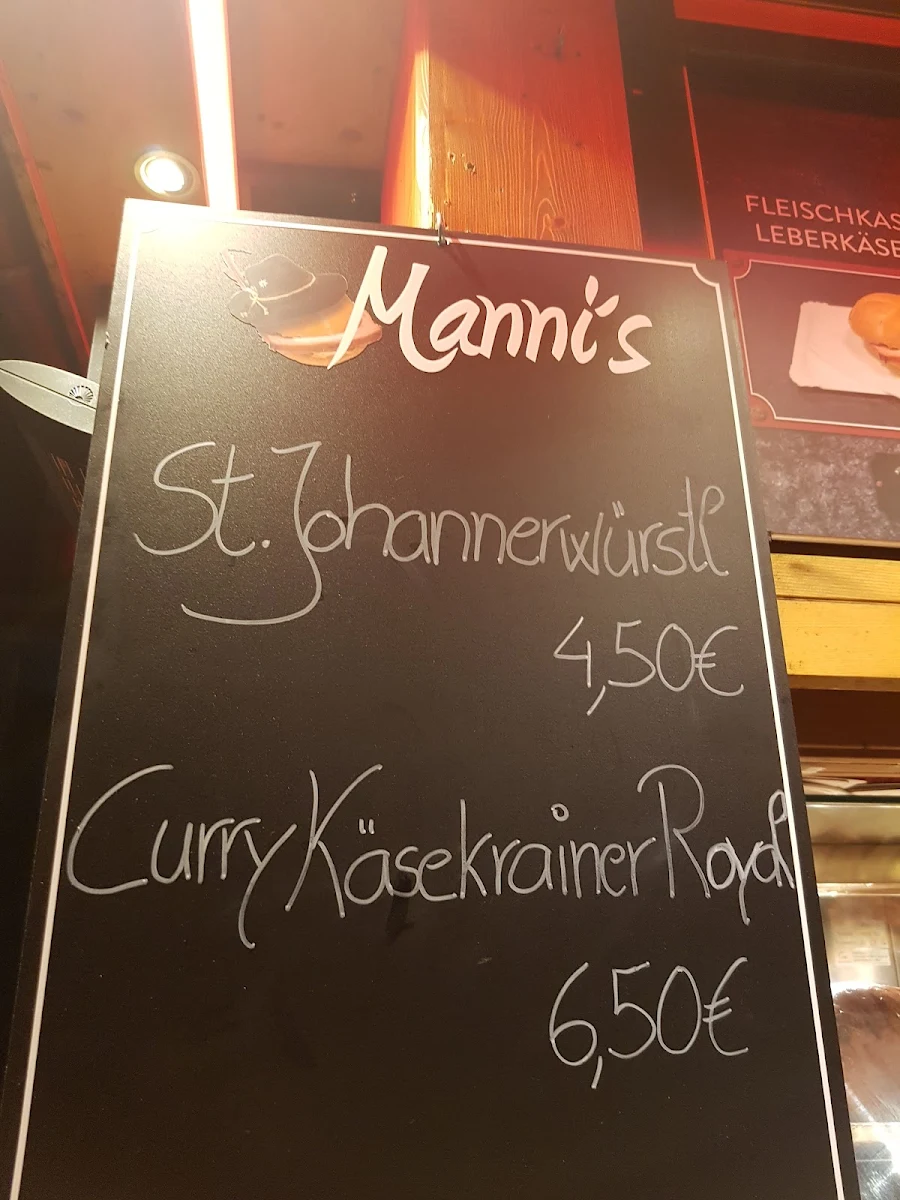 Manni's
St. Johannerwürstl
4,50€
Curry Käsekrainer Royal
6,50€
FLEISCHKAS
LEBERKÄSE